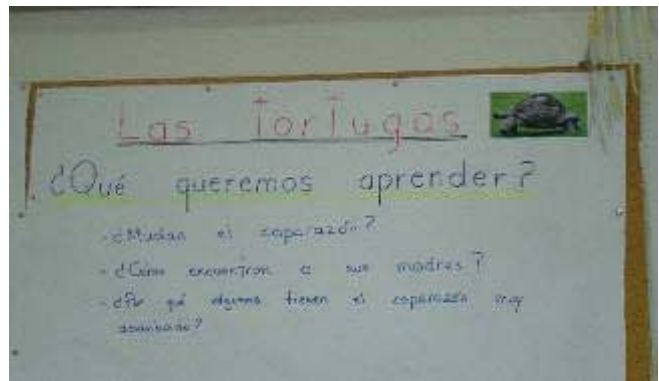 Las Tortugas
¿Qué queremos aprender?
- ¿Mudan el caparazón?
- ¿Cómo encuentran a sus madres?
- ¿Por qué algunas tienen el caparazón muy
abombado?